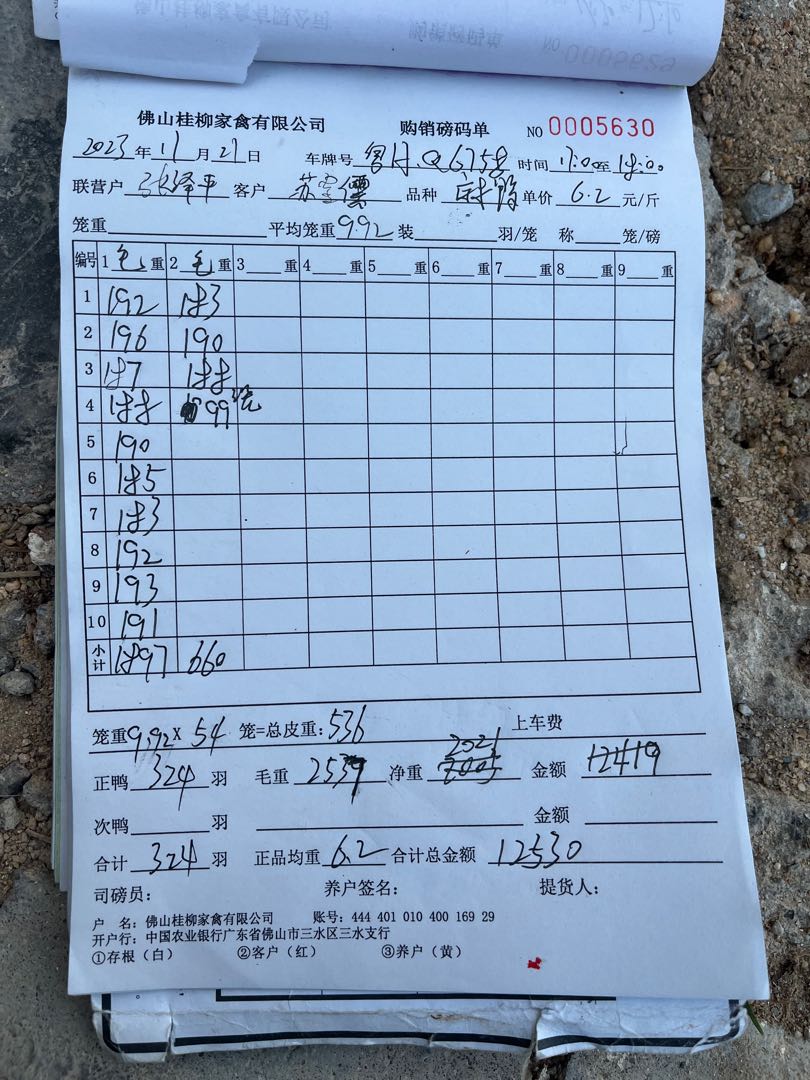 佛山桂柳家禽有限公司 购销磅码单 NO 0005629
佛山桂柳家禽有限公司 购销磅码单 NO 0005630
2023年11月27日 车牌号 粤H.Q6758 时间17:00至18:00
联营户 张泽平 客户 苏 品种 单价6.2元/斤
笼重 平均笼重9.92装 羽/笼 称 笼/磅
编号 1毛重 2毛重 3 重 4 重 5 重 6 重 7 重 8 重 9 重
1 192 183
2 196 190
3 187 188
4 188 99
5 190
6 185
7 183
8 192
9 193
10 191
小计 1897 660
笼重9.92X54 笼=总皮重:536 上车费
正鸭324羽 毛重2557 净重2021 金额12419
次鸭 羽 金额
合计324羽 正品均重6.2 合计总金额12530
司磅员: 养户签名: 提货人:
户 名: 佛山桂柳家禽有限公司 账号: 444 401 010 400 169 29
开户行: 中国农业银行广东省佛山市三水区三水支行
①存根(白) ②客户(红) ③养户(黄)